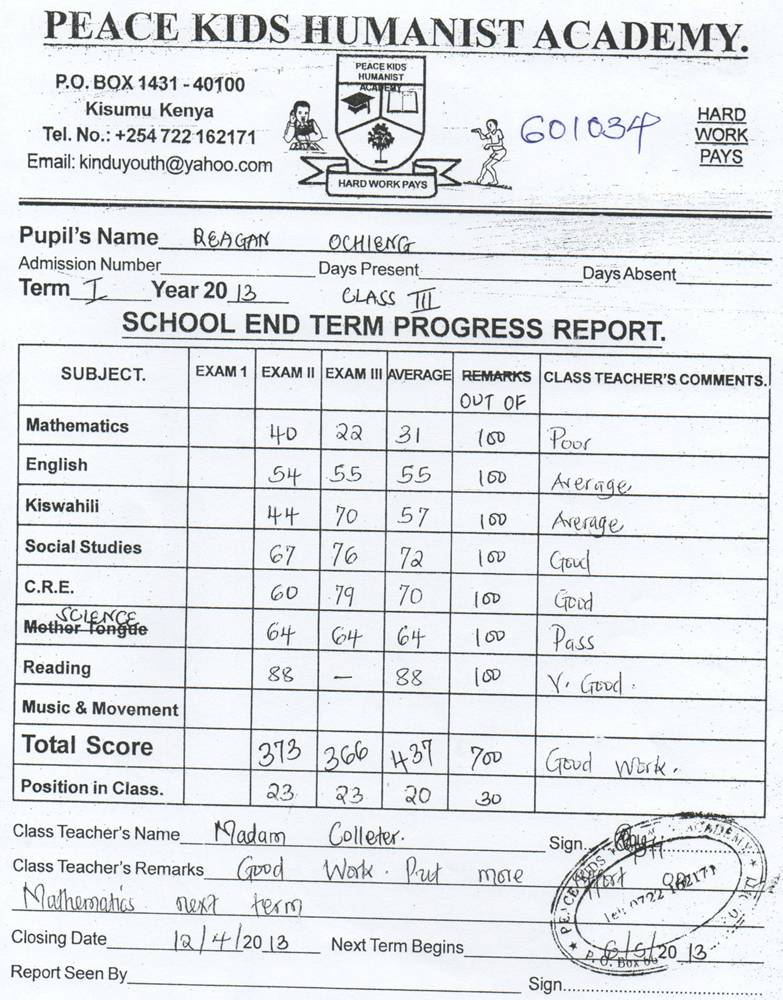 PEACE KIDS HUMANIST ACADEMY.
P.O. BOX 1431 - 40100
Kisumu Kenya
Tel. No.: +254 722 162171
Email: kinduyouth@yahoo.com
PEACE KIDS
HUMANIST
ACADEMY
HARD WORK PAYS
601034
HARD
WORK
PAYS
Pupil's Name REAGAN OCHIENG
Admission Number Days Present Days Absent
Term I Year 20 13 CLASS III
SCHOOL END TERM PROGRESS REPORT.
SUBJECT. EXAM 1 EXAM II EXAM III AVERAGE REMARKS CLASS TEACHER'S COMMENTS.
OUT OF
Mathematics 40 22 31 100 Poor
English 54 55 55 100 Average
Kiswahili 44 70 57 100 Average
Social Studies 67 76 72 100 Good
C.R.E. 60 79 70 100 Good
SCIENCE
Mother Tongue 64 64 64 100 Pass
Reading 88 – 88 100 V. Good.
Music & Movement
Total Score 373 366 437 700 Good Work.
Position in Class. 23 23 20 30
Class Teacher's Name Madam Colleter. Sign.
Class Teacher's Remarks Good Work. Put more effort on
Mathematics next term
Closing Date 12/4/20 13 Next Term Begins 6/5/20 13
Report Seen By Sign.
PEACE KIDS ACADEMY
Tel: 0722 162171
P.O. Box